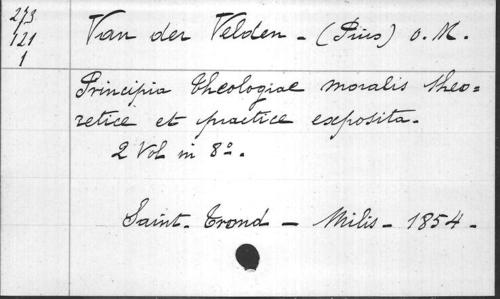 273
121
1
Van der Velden - (Pius) o. M.
Principia theologiae moralis theo=
retice et practice exposita.
2 Vol in 8º.
Saint-Trond - Milis - 1854.